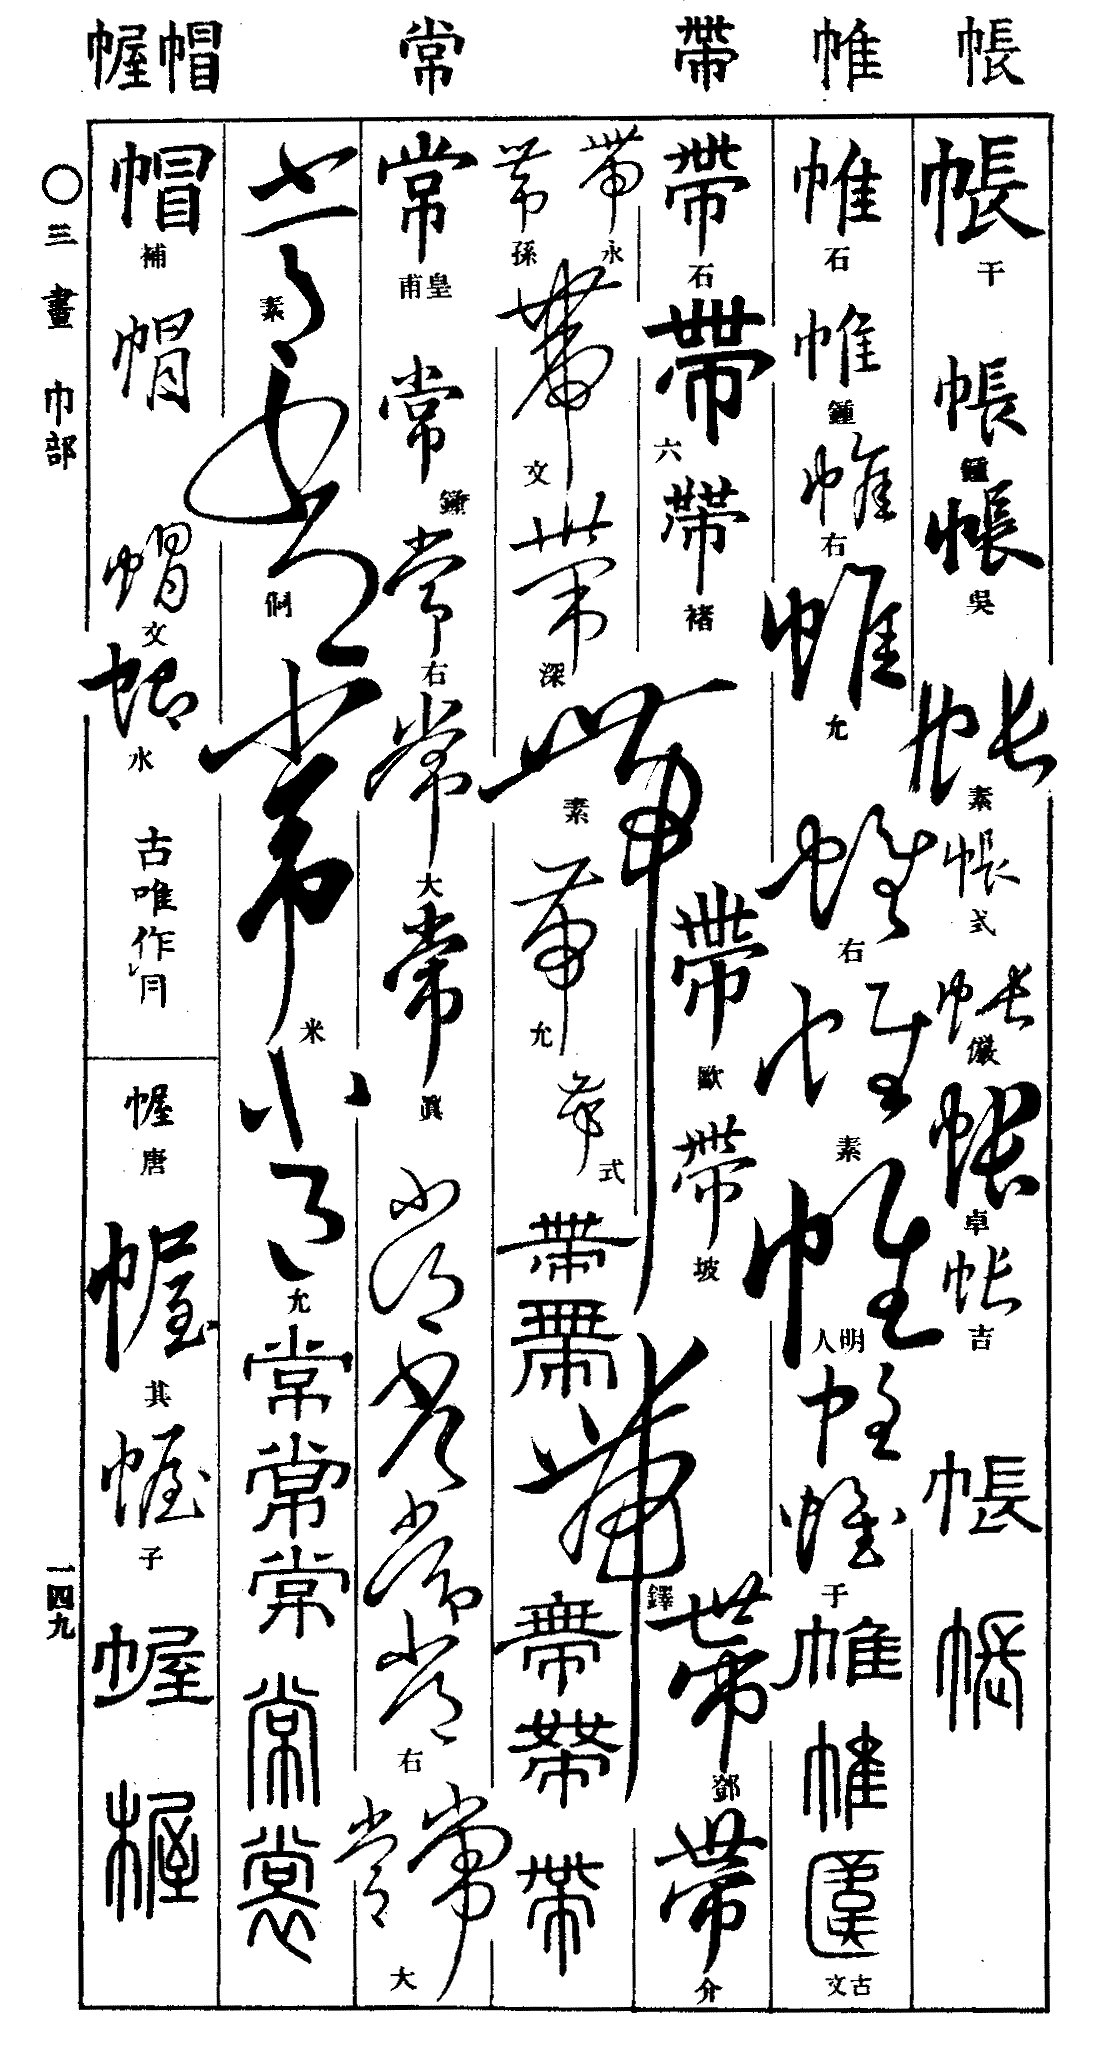 帳
帷
帶
常
帽幄
帳 干 帳 鍾 帳 吳 帳 素 帳 式 帳 儼 帳 卓 帳 吉 帳 帳
帷 石 帷 鍾 帷 右 帷 允 帷 右 帷 素 帷 明人 帷 帷 于 帷 帷 古文
帶 石 帶 六 帶 褚 帶 素 帶 歐 帶 坡 帶 鐸 帶 鄧 帶 介
帶 永 帶 孫 帶 文 帶 深 帶 允 帶 式 帶 帶 帶 帶 帶
常 皇甫 常 鍾 常 右 常 大 常 眞 常 常 常 常 右 常 常 大
常 素 常 侗 常 米 常 允 常 常 常 常 裳
帽 補 帽 帽 文 帽 水 古唯作冃
幄 唐 幄 其 幄 子 幄 幄
〇三畫 巾部
一四九